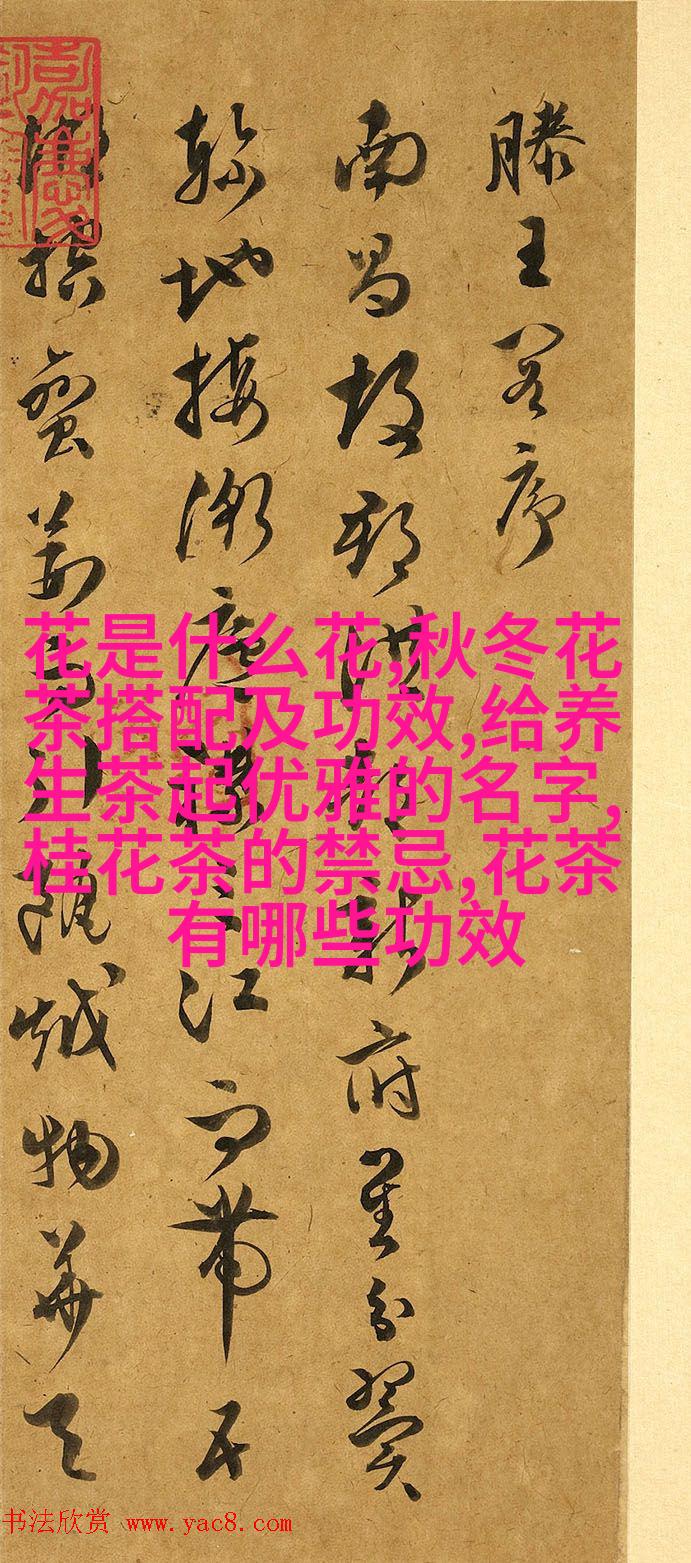 滕王閣序
南昌故郡洪都新府星分翼
軫地接衡廬襟三江而帶五
湖控蠻荊而引甌越物華天
花是什么花,秋冬花
茶搭配及功效,给养
生茶起优雅的名字,
桂花茶的禁忌,花茶
有哪些功效
书法欣赏 www.yac8.com